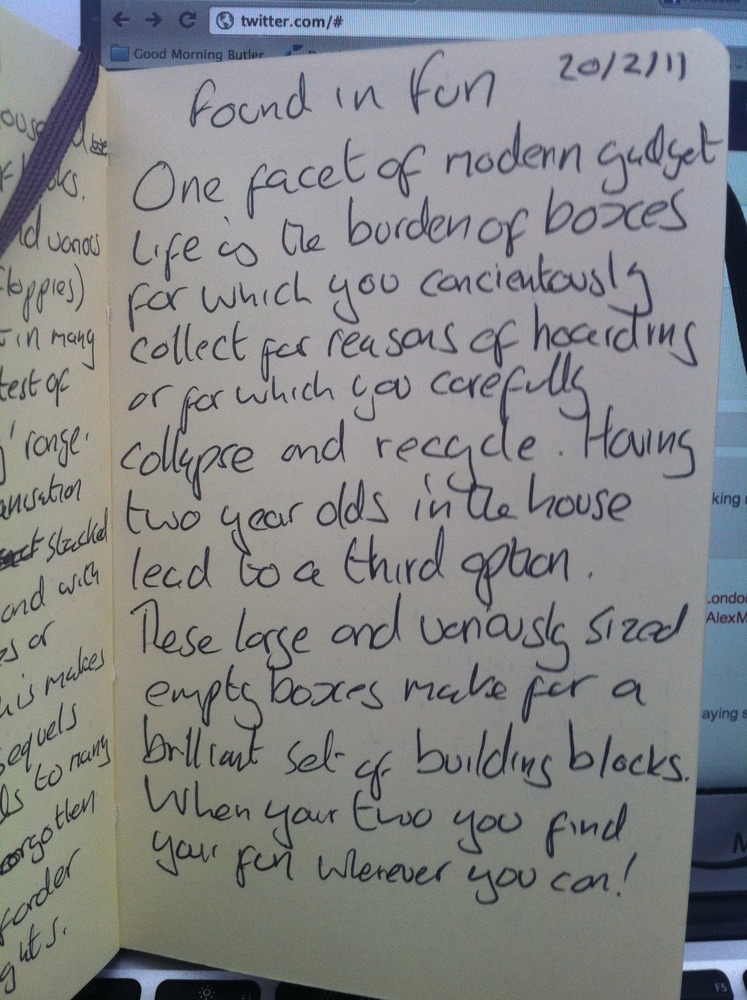 twitter.com/#
Good Morning Butler
20/2/11
Found in Fun
One facet of modern gadget
life is the burden of boxes
for which you concientously
collect for reasons of hoarding
or for which you carefully
collapse and recycle. Having
two year olds in the house
lead to a third option.
These large and variously sized
empty boxes make for a
brilliant set of building blocks.
When your two you find
your fun wherever you can!
various
floppies)
in many
test of
range.
stacked
and with
or
makes
sequels
to many
forgotten
king
Londo
AlexM
aying s
F5